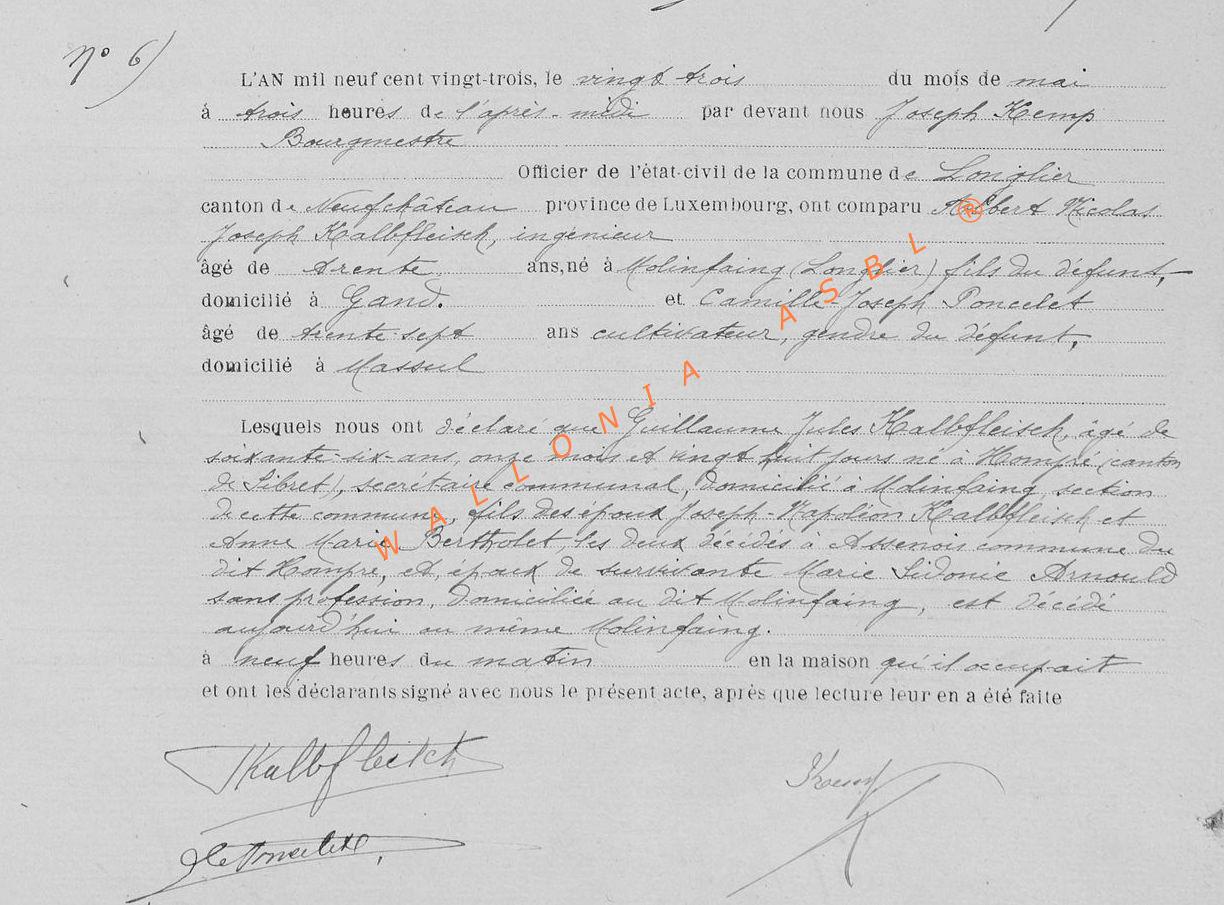 N° 6)
L'AN mil neuf cent vingt-trois, le vingt trois du mois de mai
à trois heures de l'après-midi par devant nous Joseph Kemp
Bourgmestre
Officier de l'état-civil de la commune de Longlier
canton de Neufchâteau province de Luxembourg, ont comparu Nicolas
Joseph Kalbfleisch, ingénieur
âgé de trente ans, né à Molinfaing (Longlier) fils du défunt,
domicilié à Gand. et Camille-Joseph Poncelet
âgé de trente sept ans cultivateur, gendre du défunt,
domicilié à Massul
Lesquels nous ont déclaré que Guillaume Jules Kalbfleisch, âgé de
soixante-six-ans, onze mois et vingt huit jours né à Hompré (canton
de Sibret), secrétaire communal, domicilié à Molinfaing, section
de cette commune, fils des époux Joseph-Napoléon Kalbfleisch et
Anne Marie Bertholet, les deux décédés à Assenois commune du
dit Hompré, et, époux de survivante Marie Sidonie Arnould
sans profession, domiciliée au dit Molinfaing, est décédé
aujourd'hui au même Molinfaing.
à neuf heures du matin en la maison qu'il occupait
et ont les déclarants signé avec nous le présent acte, après que lecture leur en a été faite
Kalbfleisch
Kemp
Poncelet
WALLONIA ASBL ®